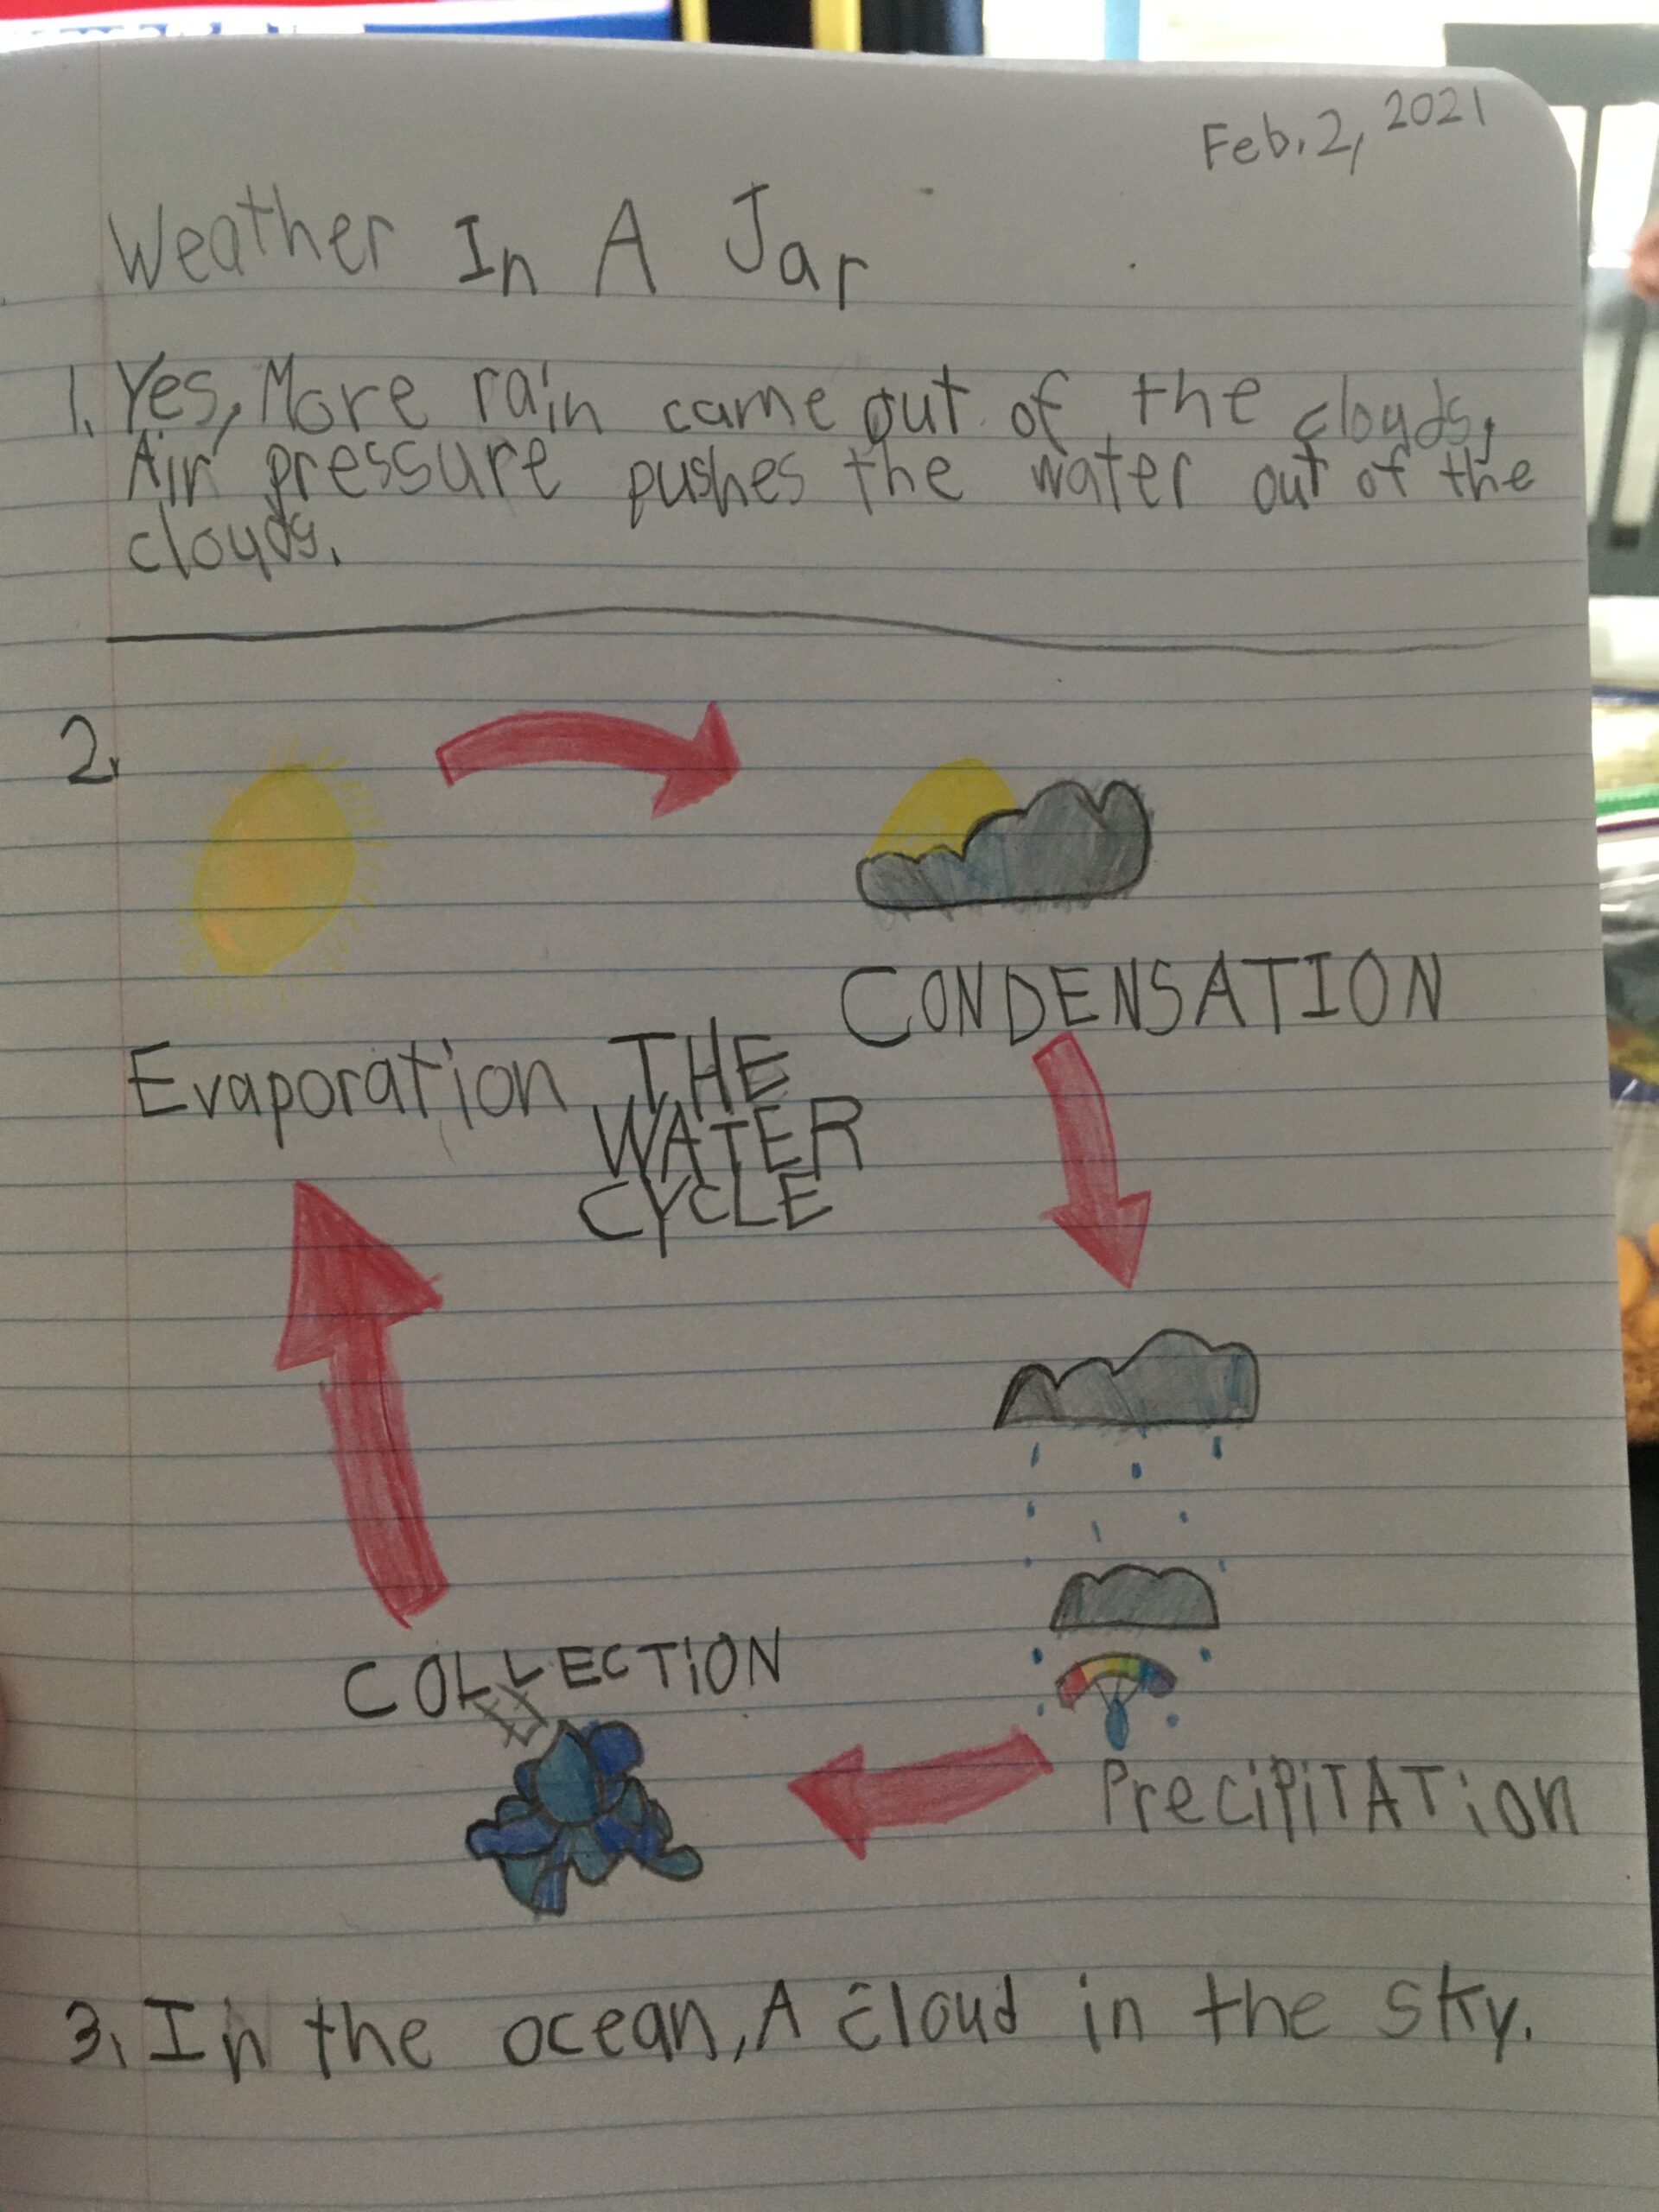 Feb. 2, 2021
Weather In A Jar
1. Yes, More rain came out of the clouds,
Air pressure pushes the water out of the
clouds.
2.
CONDENSATION
Evaporation
THE
WATER
CYCLE
COLLECTION
PreciPiTATion
3. In the ocean, A cloud in the sky.